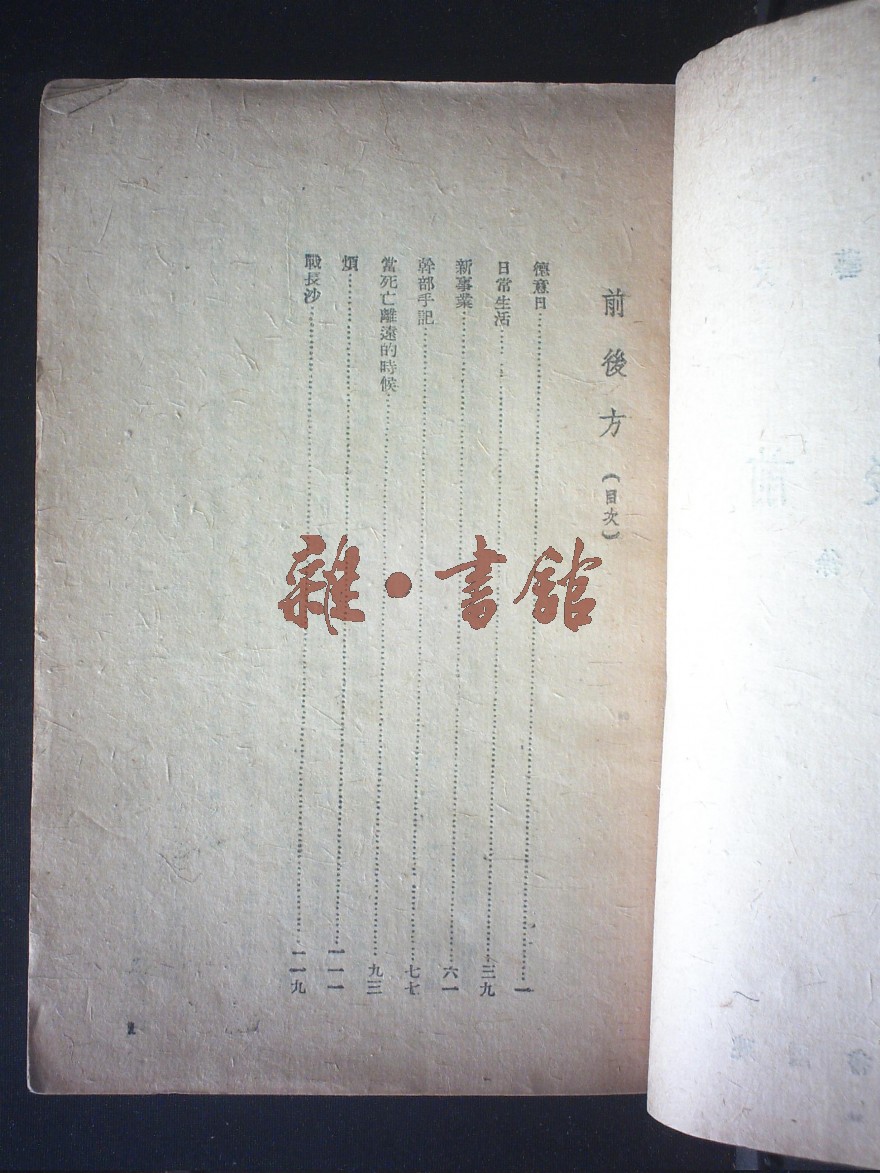 前後方(目次)
德意日……一
日常生活……三九
新事業……六一
幹部手記……七七
當死亡離遠的時候……九三
煩……一一一
戰長沙……一一九
雜·書館